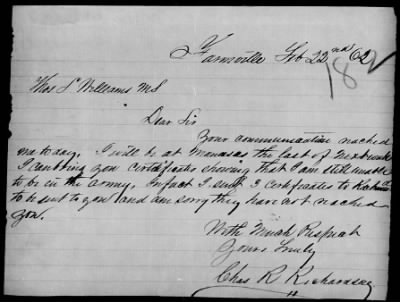 Farmville Feb 22nd 62
1862
Thos S Williams MS
Dear Sir
Your communication reached
me to day. I will be at Manasas the last of next week
I can bring you certificates showing that I am still unable
to be in the army. Infact I sent 3 certificates to
to be sent to you and am sorry they have not reached
you.
With Much Respect
Yours Truly
Chas R Richardson